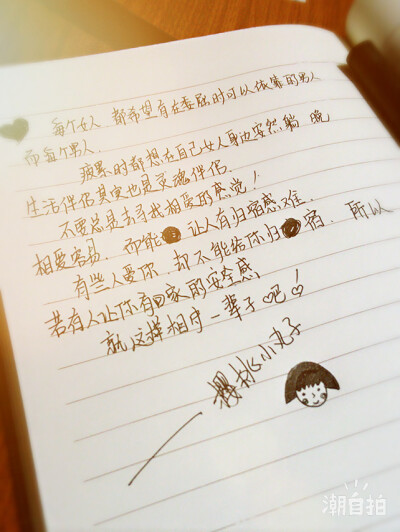 每个女人 都希望有在委屈时可以依靠的男人
而每个男人.
疲累时都想在自己女人身边安然躺
生活伴侣其实也是灵魂伴侣.
不要总是去寻找相爱的感觉！
相爱容易. 而能 让人有归宿感难.
有些人爱你. 却不能给你归 宿. 所以
若有人让你有回家的安全感
就这样相守一辈子吧！
樱桃小丸子
潮自拍